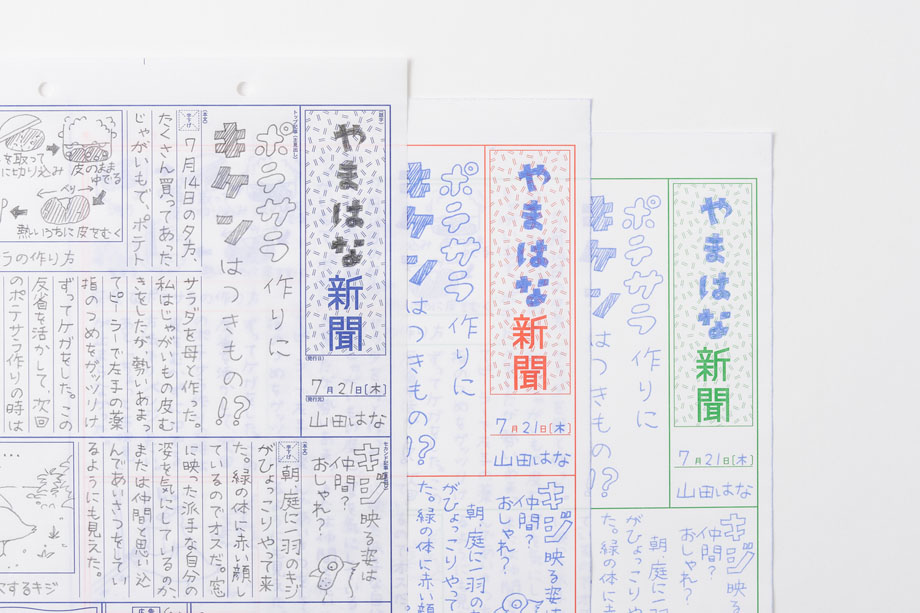 やまはな
新聞
7月21日[木]
山田はな
ポテサラ作りに
キケンはつきもの!?
7月14日の夕方、
たくさん買ってあった
じゃがいもで、ポテト
サラダを母と作った。
私はじゃがいもの皮む
きをしたが、勢いあまっ
てピーラーで左手の薬
指のつめをガッツリけ
ずってケガをした。この
反省を活かして、次回
のポテサラ作りの時は
を取って
に切り込み
皮のまま
中でる
ペリッ
熱いうちに皮をむく
ラの作り方
キジ映る姿は
仲間?
おしゃれ?
朝、庭に一羽のキジ
がひょっこりやって来
た。緑の体に赤い顔し
ているのでオスだ。窓
に映った派手な自分の
姿を気にしているのか、
または仲間と思い込
んであいさつをしてい
るようにも見えた。
するキジ
やまはな
新聞
7月21日[木]
山田はな
ポテサラ作りに
キケンはつきもの!?
キジ映る
仲間?
おしゃれ?
朝、庭に一羽の
がひょっこりやって
た。緑の体に赤い顔
やまはな
新聞
7月21日[木]
山田はな
ポテサラ作りに
キケンはつきもの!?
キジ映る
仲間?
おしゃれ?
朝、庭に一羽
がひょっこりや
た。緑の体に